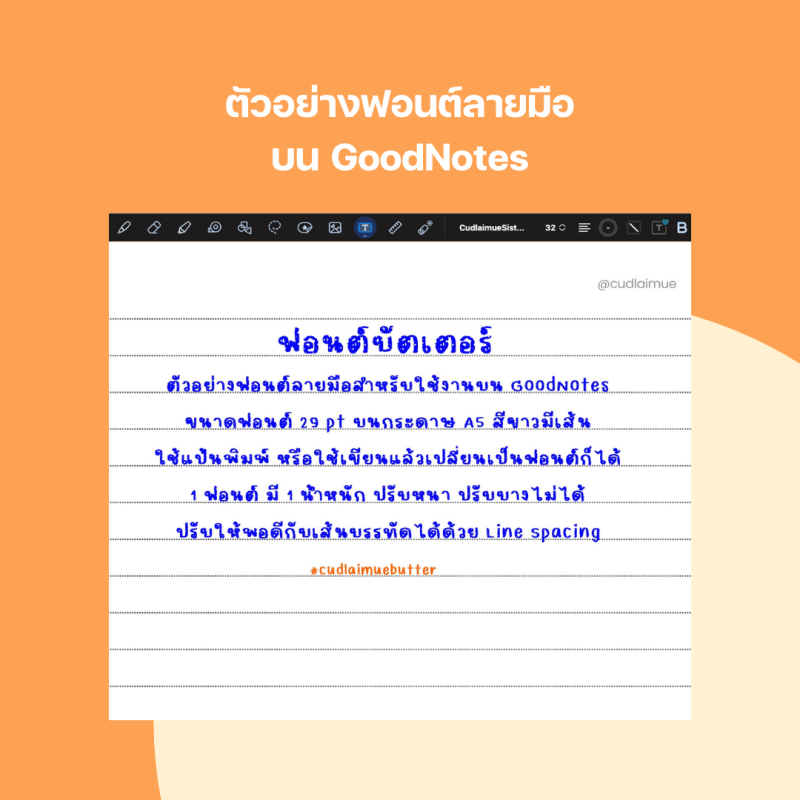 ตัวอย่างฟอนต์ลายมือ
บน GoodNotes
CudlaimueSist... 32 T B
@cudlaimue
ฟอนต์บัตเตอร์
ตัวอย่างฟอนต์ลายมือสำหรับใช้งานบน GoodNotes
ขนาดฟอนต์ 29 pt บนกระดาษ A5 สีขาวมีเส้น
ใช้แป้นพิมพ์ หรือใช้เขียนแล้วเปลี่ยนเป็นฟอนต์ก็ได้
1 ฟอนต์ มี 1 น้ำหนัก ปรับหนา ปรับบางไม่ได้
ปรับให้พอดีกับเส้นบรรทัดได้ด้วย Line spacing
#cudlaimuebutter